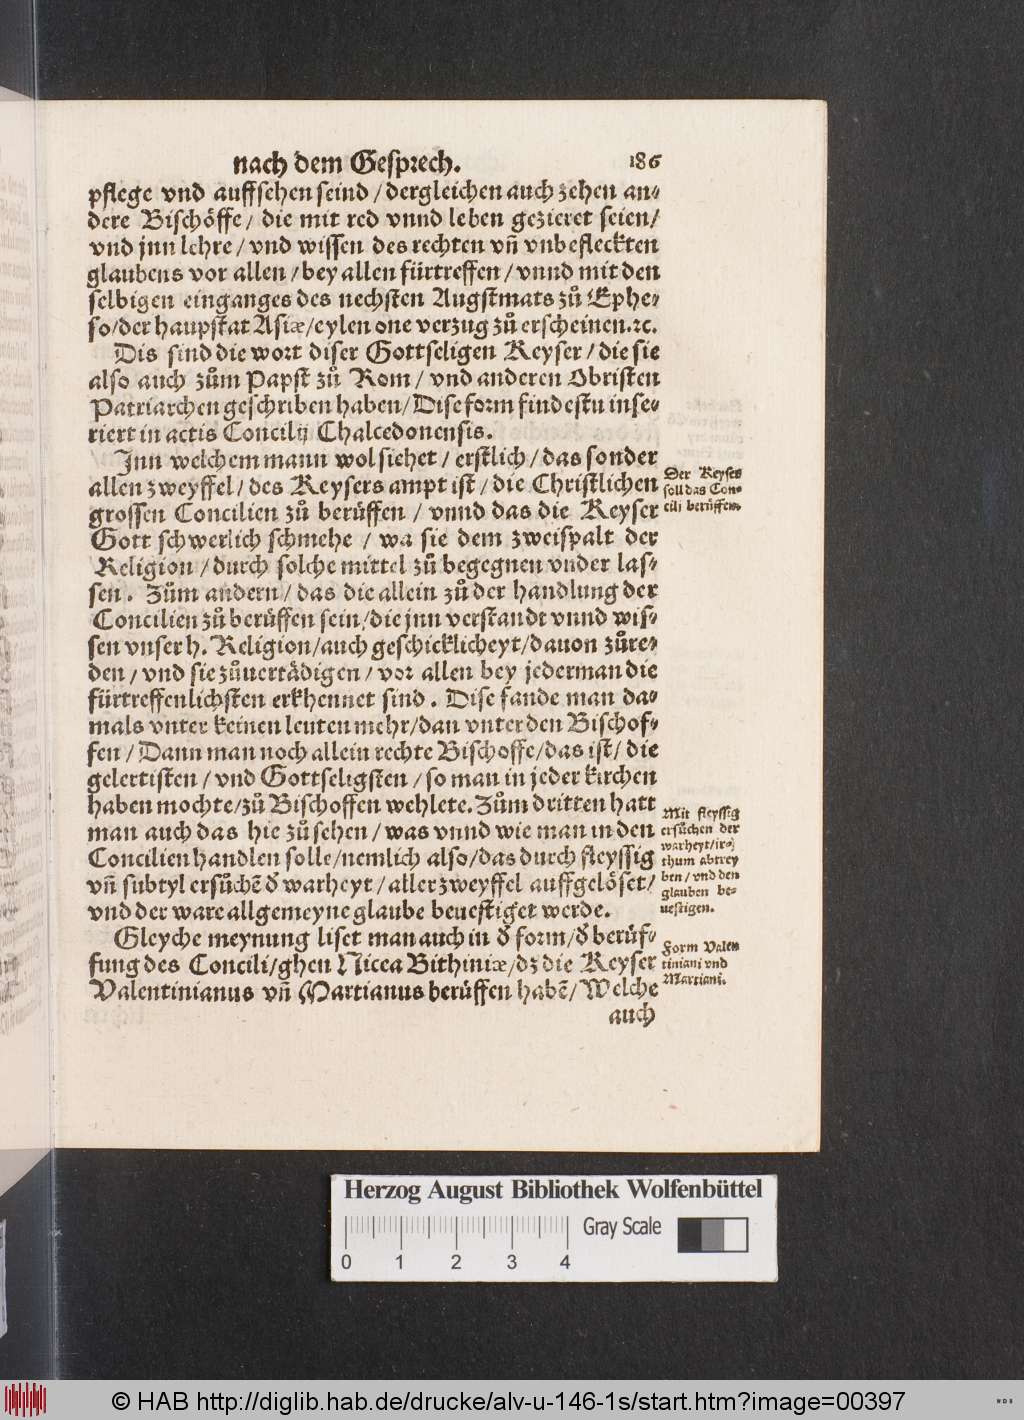 nach dem Gesprech. 186
pflege vnd auffsehen seind / dergleichen auch zehen an⸗
dere Bischöffe / die mit red vnnd leben gezieret seien /
vnd jnn lehre / vnd wissen des rechten vn̄ vnbefleckten
glaubens vor allen / bey allen fürtreffen / vnnd mit den
selbigen einganges des nechsten Augstmats zů Ephe⸗
so / der haupstat Asiæ / eylen one verzug zů erscheinen. ꝛc.
Dis sind die wort diser Gottseligen Keyser / die sie
also auch zům Papst zů Rom / vnd anderen Obristen
Patriarchen geschriben haben / Dise form findestu inse⸗
riert in actis Concilij Chalcedonensis.
Jnn welchem mann wol siehet / erstlich / das sonder
allen zweyffel / des Keysers ampt ist / die Christlichen
grossen Concilien zů berůffen / vnnd das die Keyser
Gott schwerlich schmehe / wa sie dem zweispalt der
Religion / durch solche mittel zů begegnen vnder las⸗
sen. Zům andern / das die allein zů der handlung der
Concilien zů berůffen sein / die jnn verstandt vnnd wis⸗
sen vnser h. Religion / auch geschicklicheyt / dauon zůre⸗
den / vnd sie zůuertädigen / vor allen bey jederman die
fürtreffenlichsten erkhennet sind. Dise fande man da⸗
mals vnter keinen leuten mehr / dan vnter den Bischof⸗
fen / Dann man noch allein rechte Bischoffe / das ist / die
gelertisten / vnd Gottseligsten / so man in jeder kirchen
haben mochte / zů Bischoffen wehlete. Zům dritten hatt
man auch das hie zů sehen / was vnnd wie man in den
Concilien handlen solle / nemlich also / das durch fleyssig
vn̄ subtyl ersůchē d̓ warheyt / aller zweyffel auffgelöset /
vnd der ware allgemeyne glaube beuestiget werde.
Gleyche meynung liset man auch in d̓ form / d̓ berůf⸗
fung des Concili / ghen Nicea Bithiniæ / dz die Keyser
Valentinianus vn̄ Martianus berůffen habē / Welche
auch
Der Keyser
soll das Con⸗
cilj berůffem.
Mit fleyssig
ersůchen der
warheyt / ir⸗
thum abtrey
ben / vnd den
glauben be⸗
uestigen.
Form Valen
tiniani vnd
Martiani.
Herzog August Bibliothek Wolfenbüttel
Gray Scale
0 1 2 3 4
© HAB http://diglib.hab.de/drucke/alv-u-146-1s/start.htm?image=00397